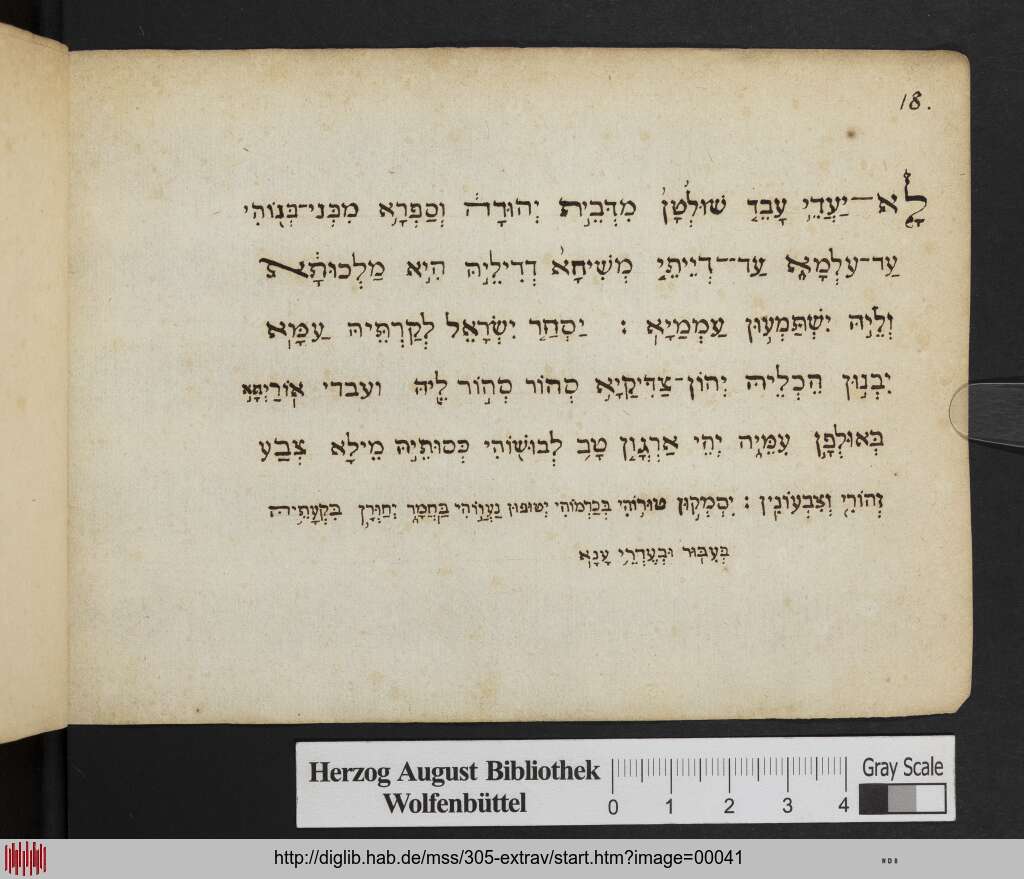 18.
לָא־יַעְדֵי עָבֵד שׁוּלְטָן מִדְּבֵית יְהוּדָה וְסַפְרָא מִבְּנֵי־בְנוֹהִי
עַד־עָלְמָא עַד־דְּיֵיתֵי מְשִׁיחָא דְּדִילֵיהּ הִיא מַלְכוּתָא
וְלֵיהּ יִשְׁתַּמְעוּן עַמְמַיָא : יַסְחַר יִשְׂרָאֵל לְקַרְתֵּיהּ עַמָּא
יִבְנוּן הֵכְלֵיהּ יְהוֹן־צַדִּיקַיָא סְחוֹר סְחוֹר לֵיהּ ועבדי אוֹרַיְתָא
בְּאוּלְפָן עִמֵּיהּ יְהֵי אַרְגְּוָן טָב לְבוּשׁוֹהִי כְּסוּתֵיהּ מֵילָא צְבַע
זְהוֹרִי וְצִבְעוֹנִין : יִסְמְקוּן טוּרוֹהִי בְּכַרְמוֹהִי יְטוּפוּן נַעְווֹהִי בַּחֲמָר יְחַוְּרָן בִּקְעָתֵיהּ
בְּעִבּוּר וּבְעֶדְרֵי עָנָא
Herzog August Bibliothek
Wolfenbüttel
0 1 2 3 4
Gray Scale
http://diglib.hab.de/mss/305-extrav/start.htm?image=00041